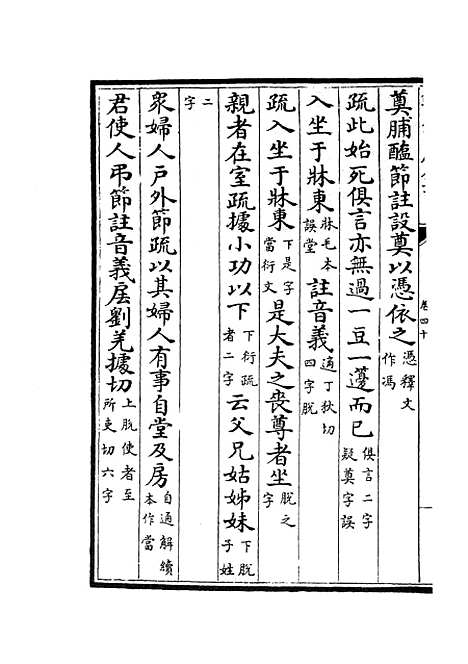 奠脯醢節註設奠以憑依之憑釋文作馮
疏此始死俱言亦無過一豆一籩而已俱言二字疑奠字誤
入坐于牀東牀毛本誤堂註音義適丁狄切四字脫
疏入坐于牀東下是字當衍文是大夫之喪尊者坐脫之字
親者在室疏據小功以下下衍疏者二字云父兄姑姊妹下脫子姓
二字
衆婦人戶外節疏以其婦人有事自堂及房自通解續本作當
君使人弔節註音義㞐劉羌據切上脫使者至所吏切六字
卷四十